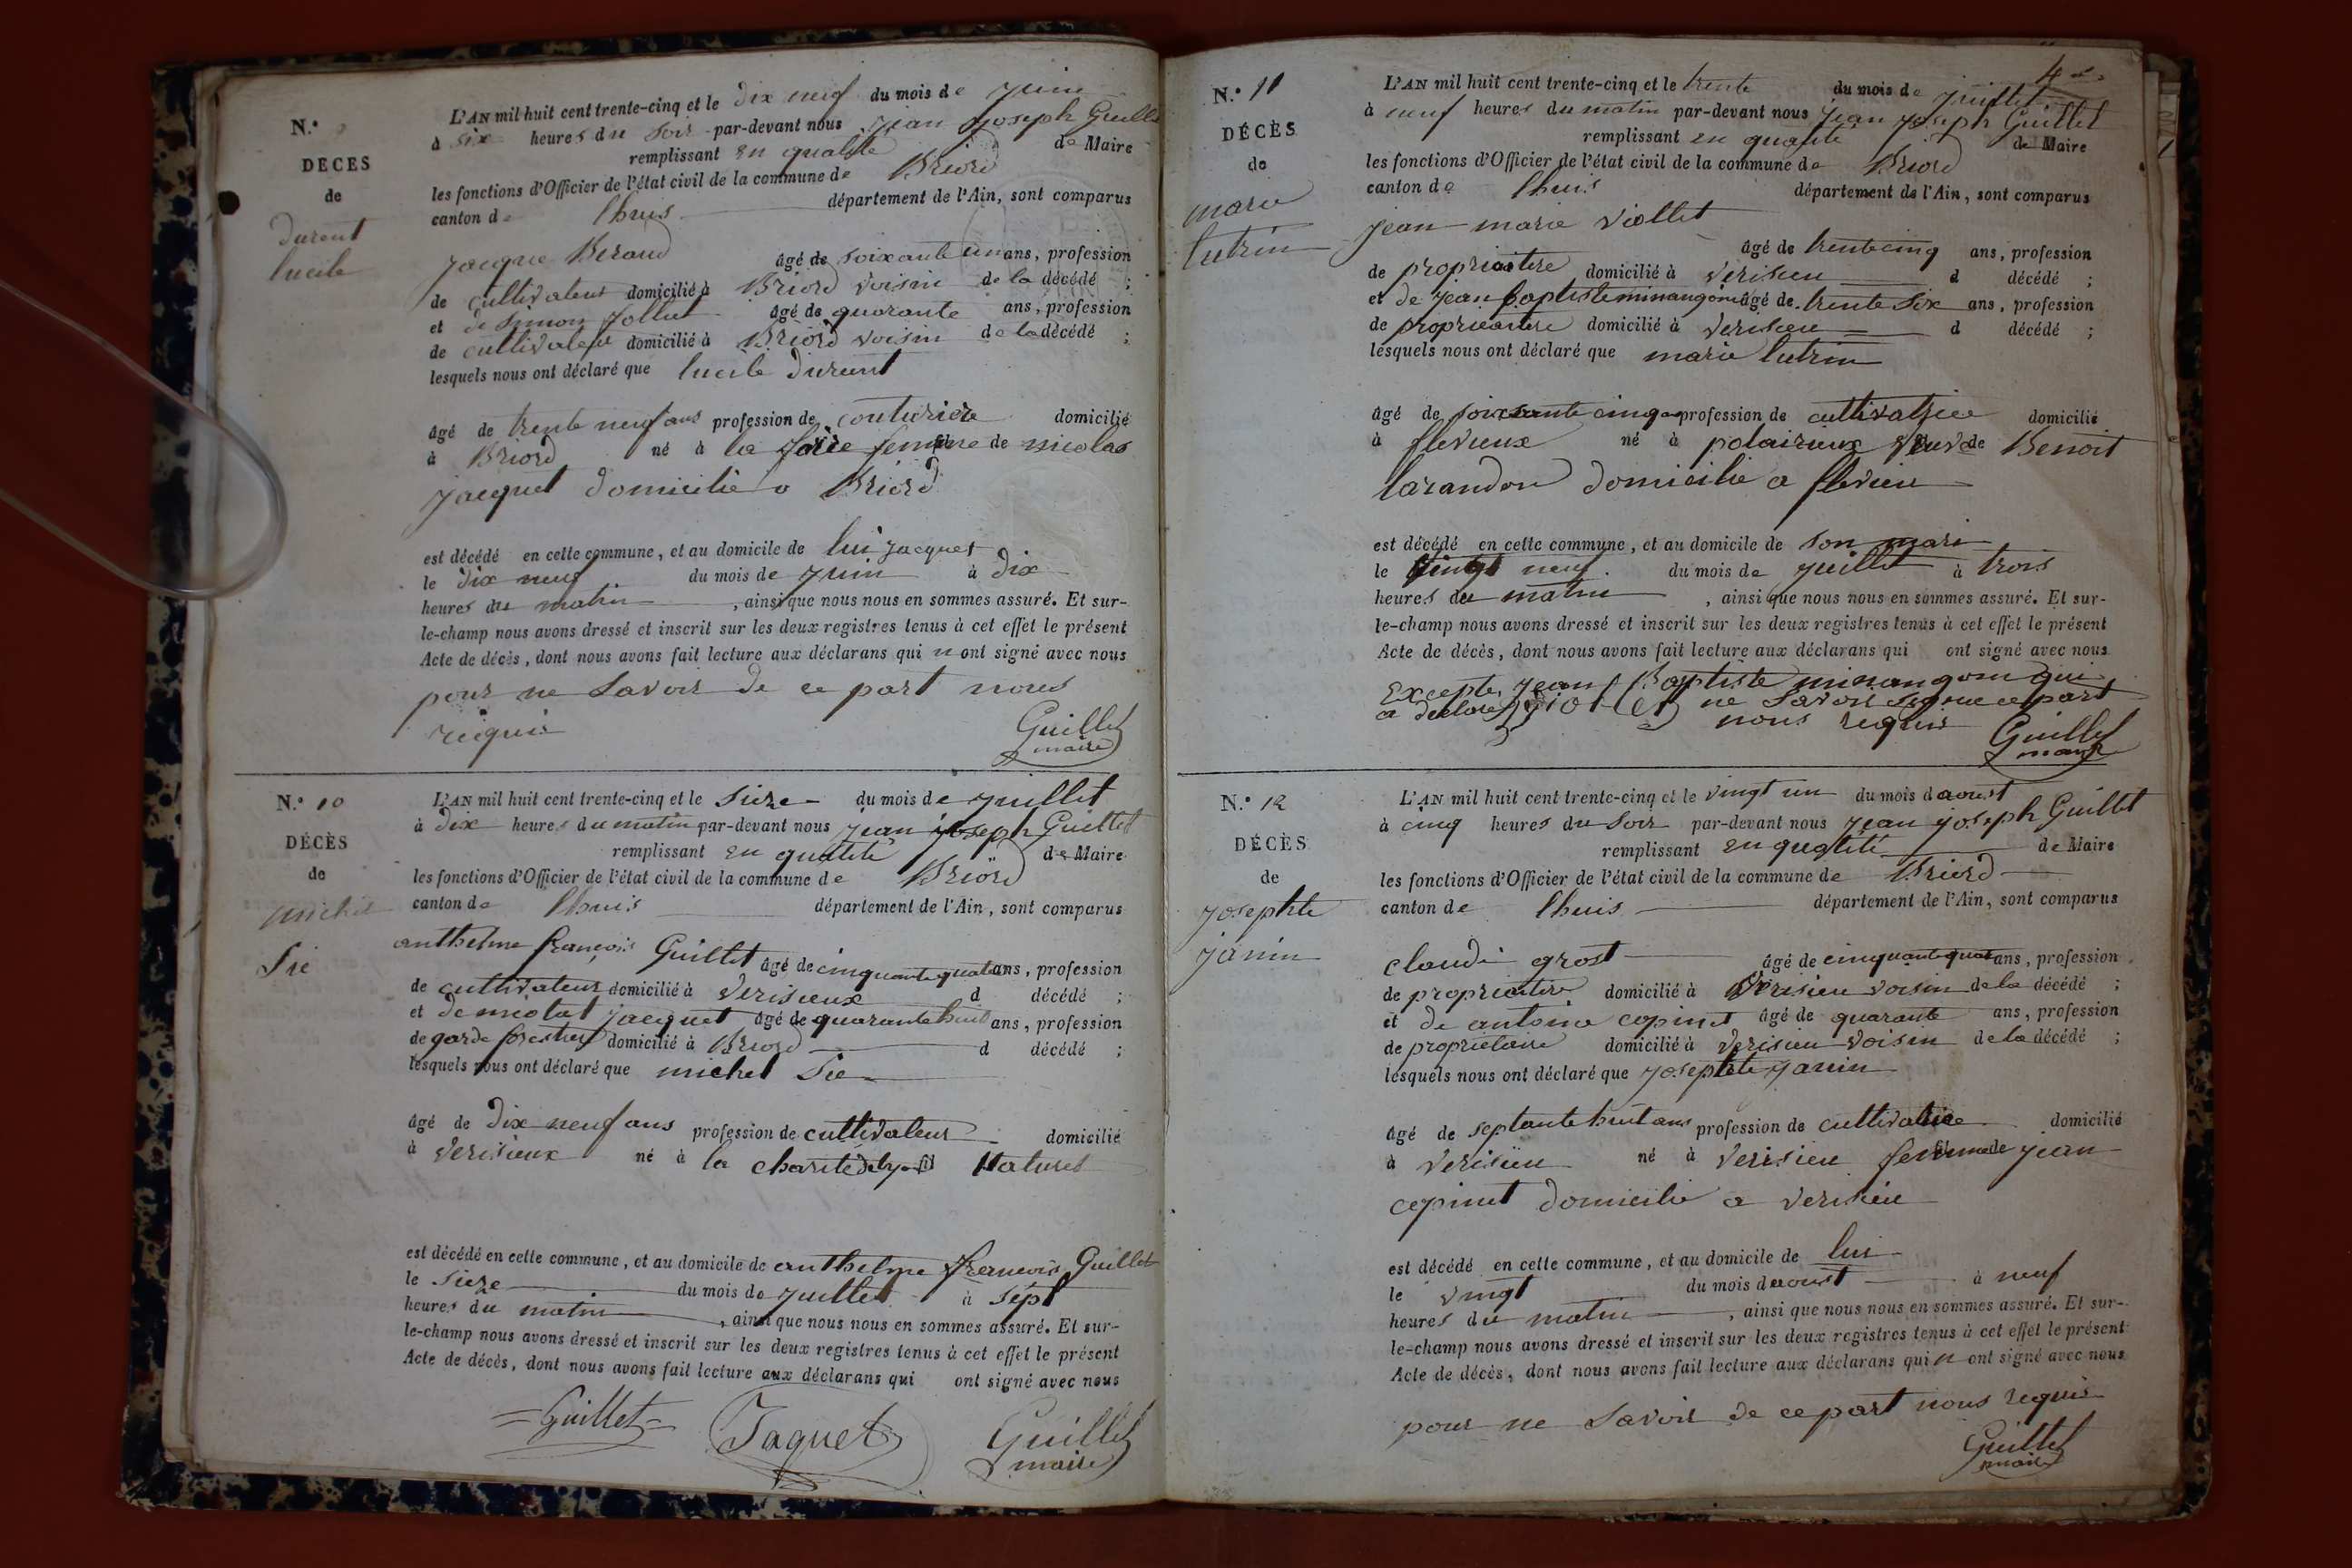 N.º
DÉCÈS
de
durent
lucile
L'AN mil huit cent trente-cinq et le dix neuf du mois de juin
à six heures du soir par-devant nous jean joseph Guillet
remplissant en qualité de Maire
les fonctions d'Officier de l'état civil de la commune de Briord
canton de lhuis département de l'Ain, sont comparus
jacque Beraud âgé de soixante un ans, profession
de cultivateur domicilié à Briord voisin de la décédé ;
et de simon jollut âgé de quarante ans, profession
de cultivateur domicilié à Briord voisin de la décédé ;
lesquels nous ont déclaré que lucile durent
âgé de trente neuf ans profession de couturiere domicilié
à Briord né à la femme de nicolas
jacquet domicilié a Briord
est décédé en cette commune, et au domicile de lui jacquet
le dix neuf du mois de juin à dix
heures du matin, ainsi que nous nous en sommes assuré. Et sur-
le-champ nous avons dressé et inscrit sur les deux registres tenus à cet effet le présent
Acte de décès, dont nous avons fait lecture aux déclarans qui n ont signé avec nous
pour ne savoir de ce part nous
requis
Guillet
maire
N.º 10
DÉCÈS
de
michel
Sie
L'AN mil huit cent trente-cinq et le sieze du mois de juillet
à dix heures du matin par-devant nous jean joseph Guillet
remplissant en qualité de Maire
les fonctions d'Officier de l'état civil de la commune de Briord
canton de lhuis département de l'Ain, sont comparus
anthelme françois Guillet âgé de cinquante quatre ans, profession
de cultivateur domicilié à verisieux d décédé ;
et de nicolat jacquet âgé de quarante huit ans, profession
de garde forestier domicilié à Briord d décédé ;
lesquels nous ont déclaré que michel Sie
âgé de dix neuf ans profession de cultivateur domicilié
à verisieux né à la charité de lyon fil Naturel
est décédé en cette commune, et au domicile de anthelme françois Guillet
le sieze du mois de juillet à sept
heures du matin, ainsi que nous nous en sommes assuré. Et sur-
le-champ nous avons dressé et inscrit sur les deux registres tenus à cet effet le présent
Acte de décès, dont nous avons fait lecture aux déclarans qui ont signé avec nous
Guillet Jaquet Guillet
maire
4
N.º 11
DÉCÈS
de
marie
lutrin
L'AN mil huit cent trente-cinq et le trente du mois de juillet
à neuf heures du matin par-devant nous jean joseph Guillet
remplissant en qualité de Maire
les fonctions d'Officier de l'état civil de la commune de Briord
canton de lhuis département de l'Ain, sont comparus
jean marie viollet âgé de trente cinq ans, profession
de proprieaitere domicilié à verisieu d décédé ;
et de jean baptiste minangoin âgé de trente six ans, profession
de proprieaitere domicilié à verisieu d décédé ;
lesquels nous ont déclaré que marie lutrin
âgé de soixsante cinq profession de cultivatrice domicilié
à flevieux né à polaizieux veuve de Benoit
larandon domicilié a flevieu
est décédé en cette commune, et au domicile de son mari
le vingt neuf du mois de juillet à trois
heures du matin, ainsi que nous nous en sommes assuré. Et sur-
le-champ nous avons dressé et inscrit sur les deux registres tenus à cet effet le présent
Acte de décès, dont nous avons fait lecture aux déclarans qui ont signé avec nous
Excepte jean Baptiste minangoin qui
a declaré ne savoir signe ce part
nous requis
violet
Guillet
maire
N.º 12
DÉCÈS
de
josephte
janin
L'AN mil huit cent trente-cinq et le vingt un du mois d aoust
à cinq heures du soir par-devant nous jean joseph Guillet
remplissant en qualité de Maire
les fonctions d'Officier de l'état civil de la commune de Briord
canton de lhuis département de l'Ain, sont comparus
claude grost âgé de cinquante quatre ans, profession
de proprieaitere domicilié à verisieu voisin de la décédé ;
et de antoine copinet âgé de quarante ans, profession
de proprietaire domicilié à verisieu voisin de la décédé ;
lesquels nous ont déclaré que josephte janin
âgé de septante huit ans profession de cultivatrice domicilié
à verisieu né à verisieu femme de jean
copinet domicilié a verisieu
est décédé en cette commune, et au domicile de lui
le vingt du mois d aoust à neuf
heures du matin, ainsi que nous nous en sommes assuré. Et sur-
le-champ nous avons dressé et inscrit sur les deux registres tenus à cet effet le présent
Acte de décès, dont nous avons fait lecture aux déclarans qui n ont signé avec nous
pour ne savoir de ce part nous requis
Guillet
maire